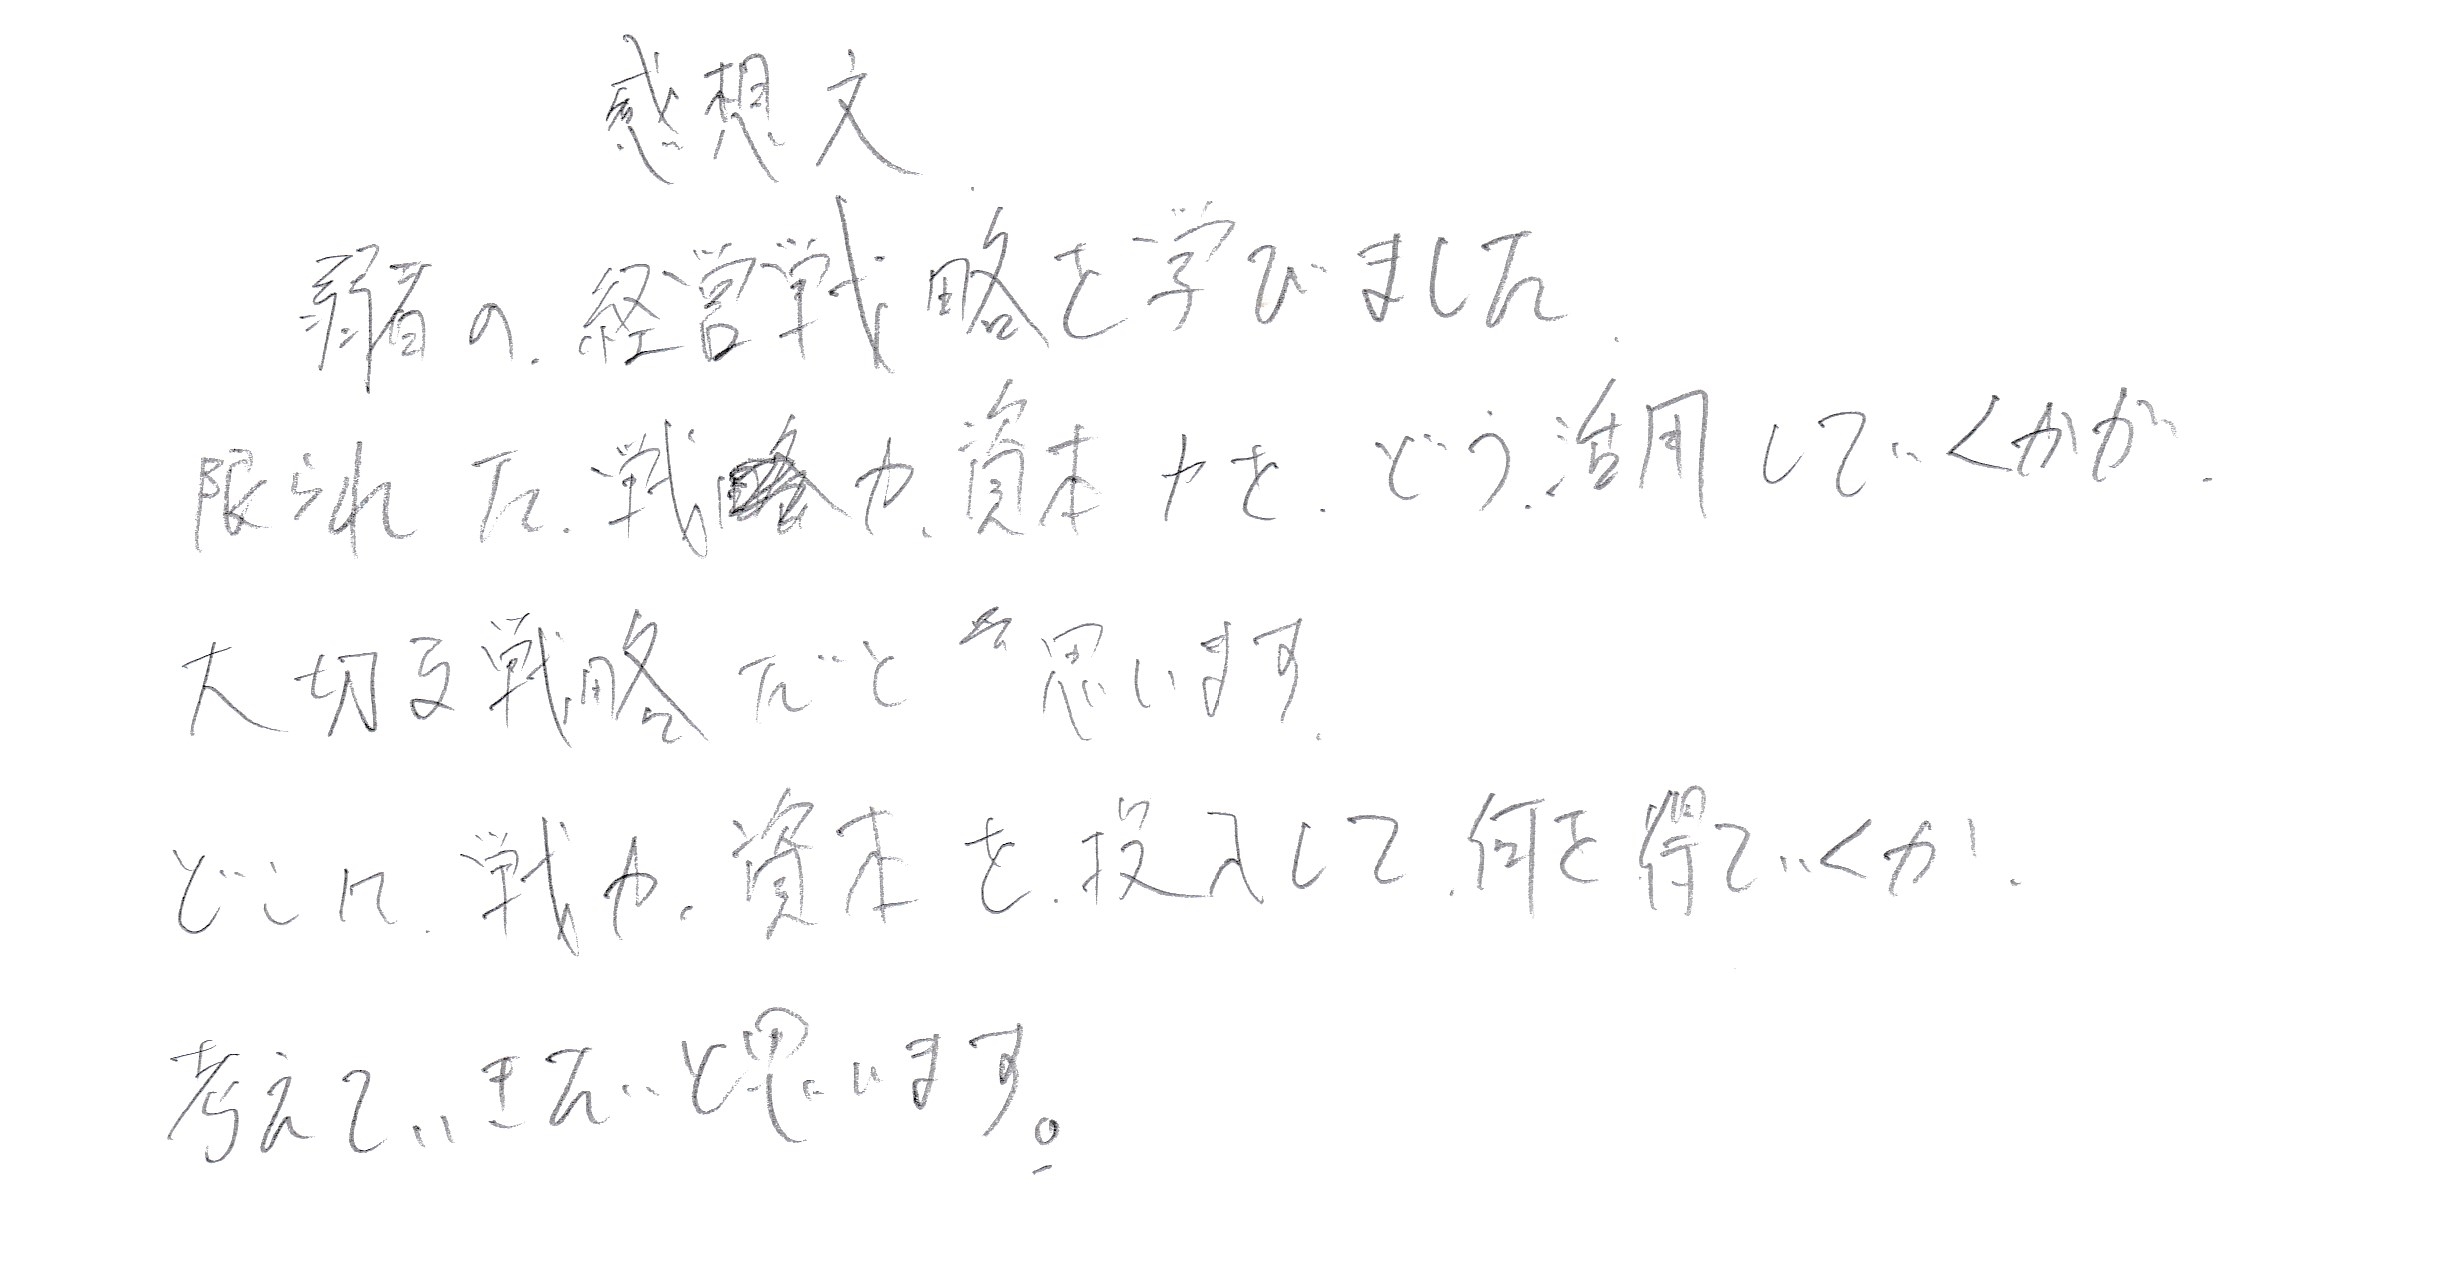 感想文
弱者の、経営戦略を学びました。
限られた、戦力、資本力を、どう、活用していくかが、
大切な戦略だと思います。
どこに、戦力、資本を、投入して、何を得ていくか、
考えていきたいと思います。